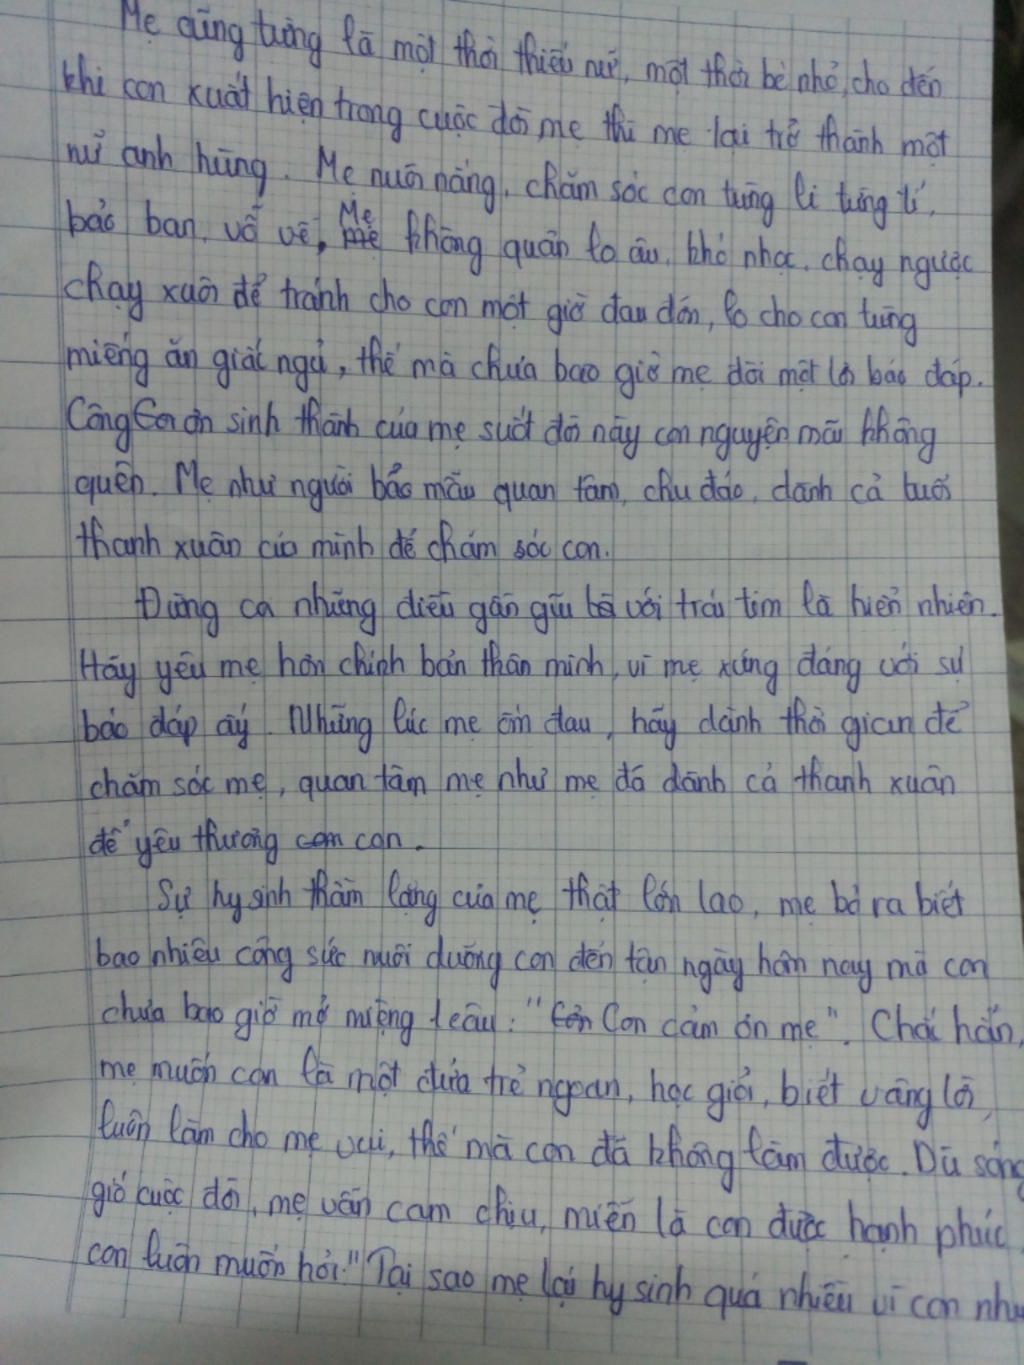 Mẹ cũng từng là một thời thiếu nữ, một thời bé nhỏ, cho đến
khi con xuất hiện trong cuộc đời mẹ thì mẹ lại trở thành một
nữ anh hùng. Mẹ nuôi nấng, chăm sóc con từng li từng tí,
bảo ban, vỗ về, Mẹ không quản lo âu, khó nhọc, chạy ngược
chạy xuôi để tránh cho con một giờ đau đớn, lo cho con từng
miếng ăn giấc ngủ, thế mà chưa bao giờ mẹ đòi một lời báo đáp.
Công ơn sinh thành của mẹ suốt đời này con nguyện mãi không
quên. Mẹ như người bảo mẫu quan tâm, chu đáo, dành cả tuổi
thanh xuân của mình để chăm sóc con.
Đừng ca những điều gần gũi với trái tim là hiển nhiên.
Hãy yêu mẹ hơn chính bản thân mình, vì mẹ xứng đáng với sự
báo đáp ấy. Những lúc mẹ ốm đau, hãy dành thời gian để
chăm sóc mẹ, quan tâm mẹ như mẹ đã dành cả thanh xuân
để yêu thương con.
Sự hy sinh thầm lặng của mẹ thật lớn lao, mẹ bỏ ra biết
bao nhiêu công sức nuôi dưỡng con đến tận ngày hôm nay mà con
chưa bao giờ mở miệng 1 câu: "Con cảm ơn mẹ". Chắc hẳn,
mẹ muốn con là một đứa trẻ ngoan, học giỏi, biết vâng lời,
luôn làm cho mẹ vui, thế mà con đã không làm được. Dù sóng
gió cuộc đời, mẹ vẫn cam chịu, miễn là con được hạnh phúc,
con luôn muốn hỏi: "Tại sao mẹ lại hy sinh quá nhiều vì con như